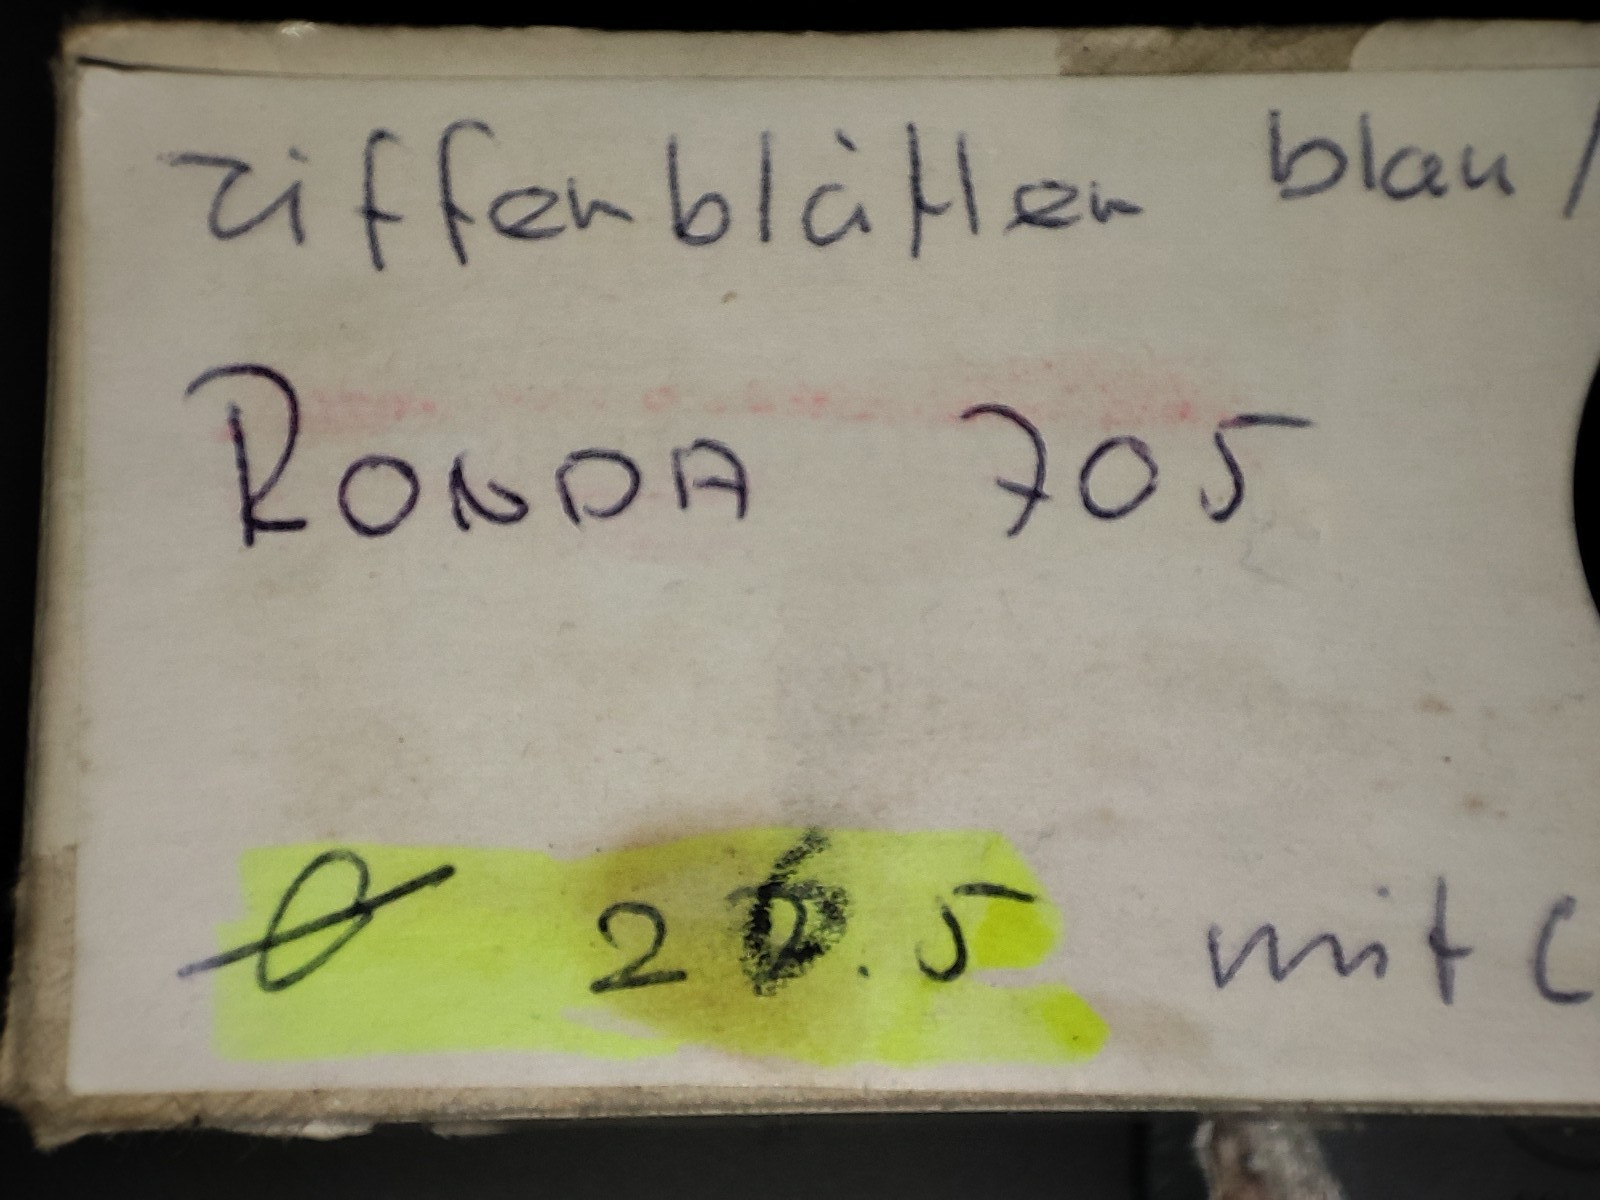 Zifferblätter blau /
RONDA 705
Ø 26.5 mit